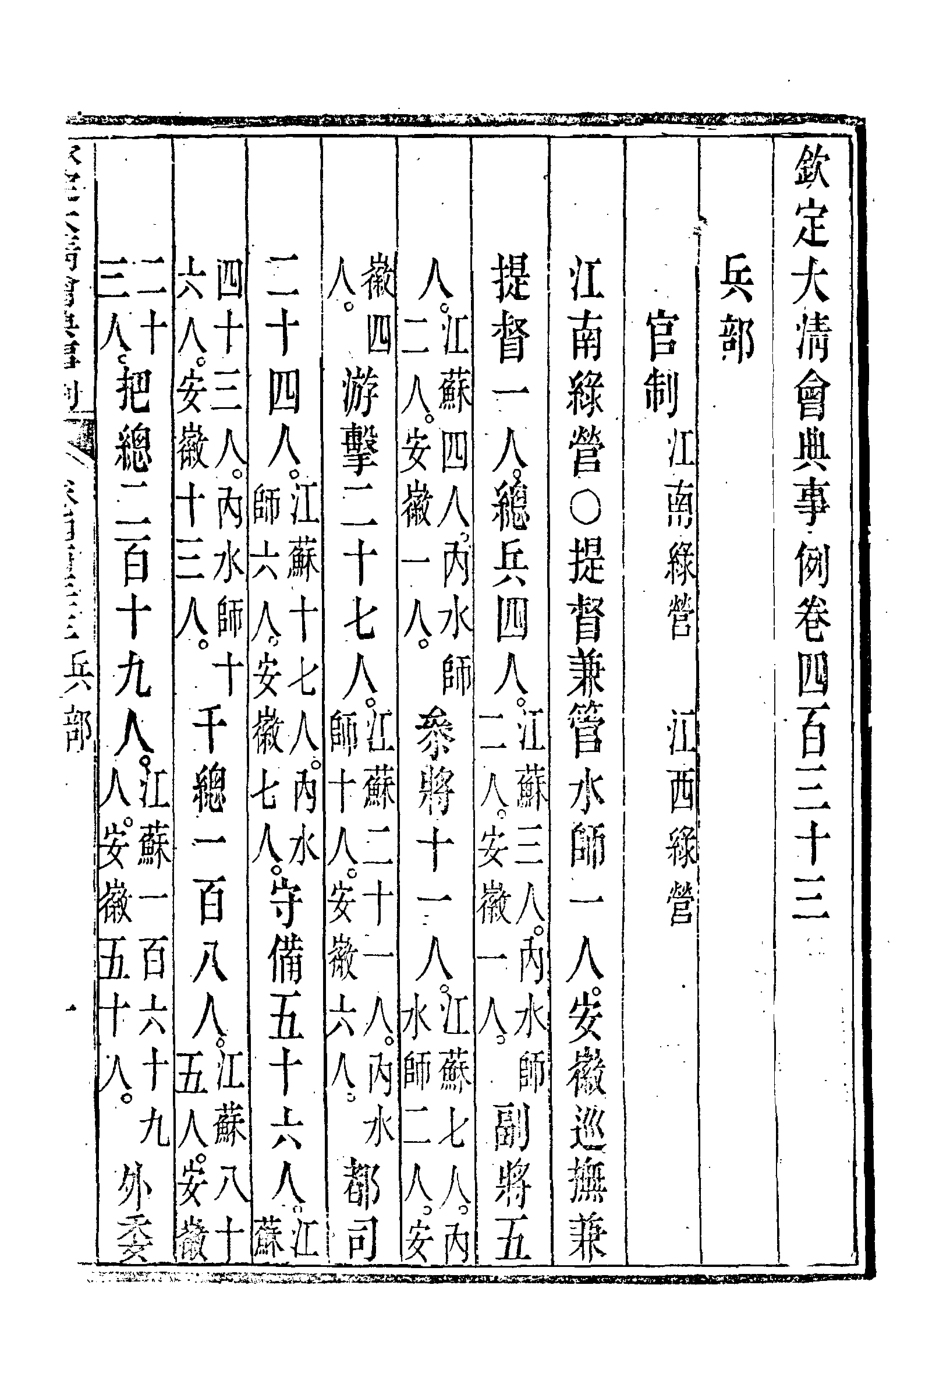 欽定大清會典事例卷四百三十三
兵部
官制 江南綠營 江西綠營
江南綠營○提督兼管水師一人。安徽巡撫兼
提督一人。總兵四人。江蘇三人。內水師二人。安徽一人。副將五
人。江蘇四人。內水師二人。安徽一人。參將十一人。江蘇七人。內水師二人。安
徽四人。游擊二十七人。江蘇二十一人。內水師十人。安徽六人。都司
二十四人。江蘇十七人。內水師六人。安徽七人。守備五十六人。江蘇
四十三人。內水師十六人。安徽十三人。千總一百八人。江蘇八十五人。安徽
二十三人。把總二百十九人。江蘇一百六十九人。安徽五十人。外委
兵部 一